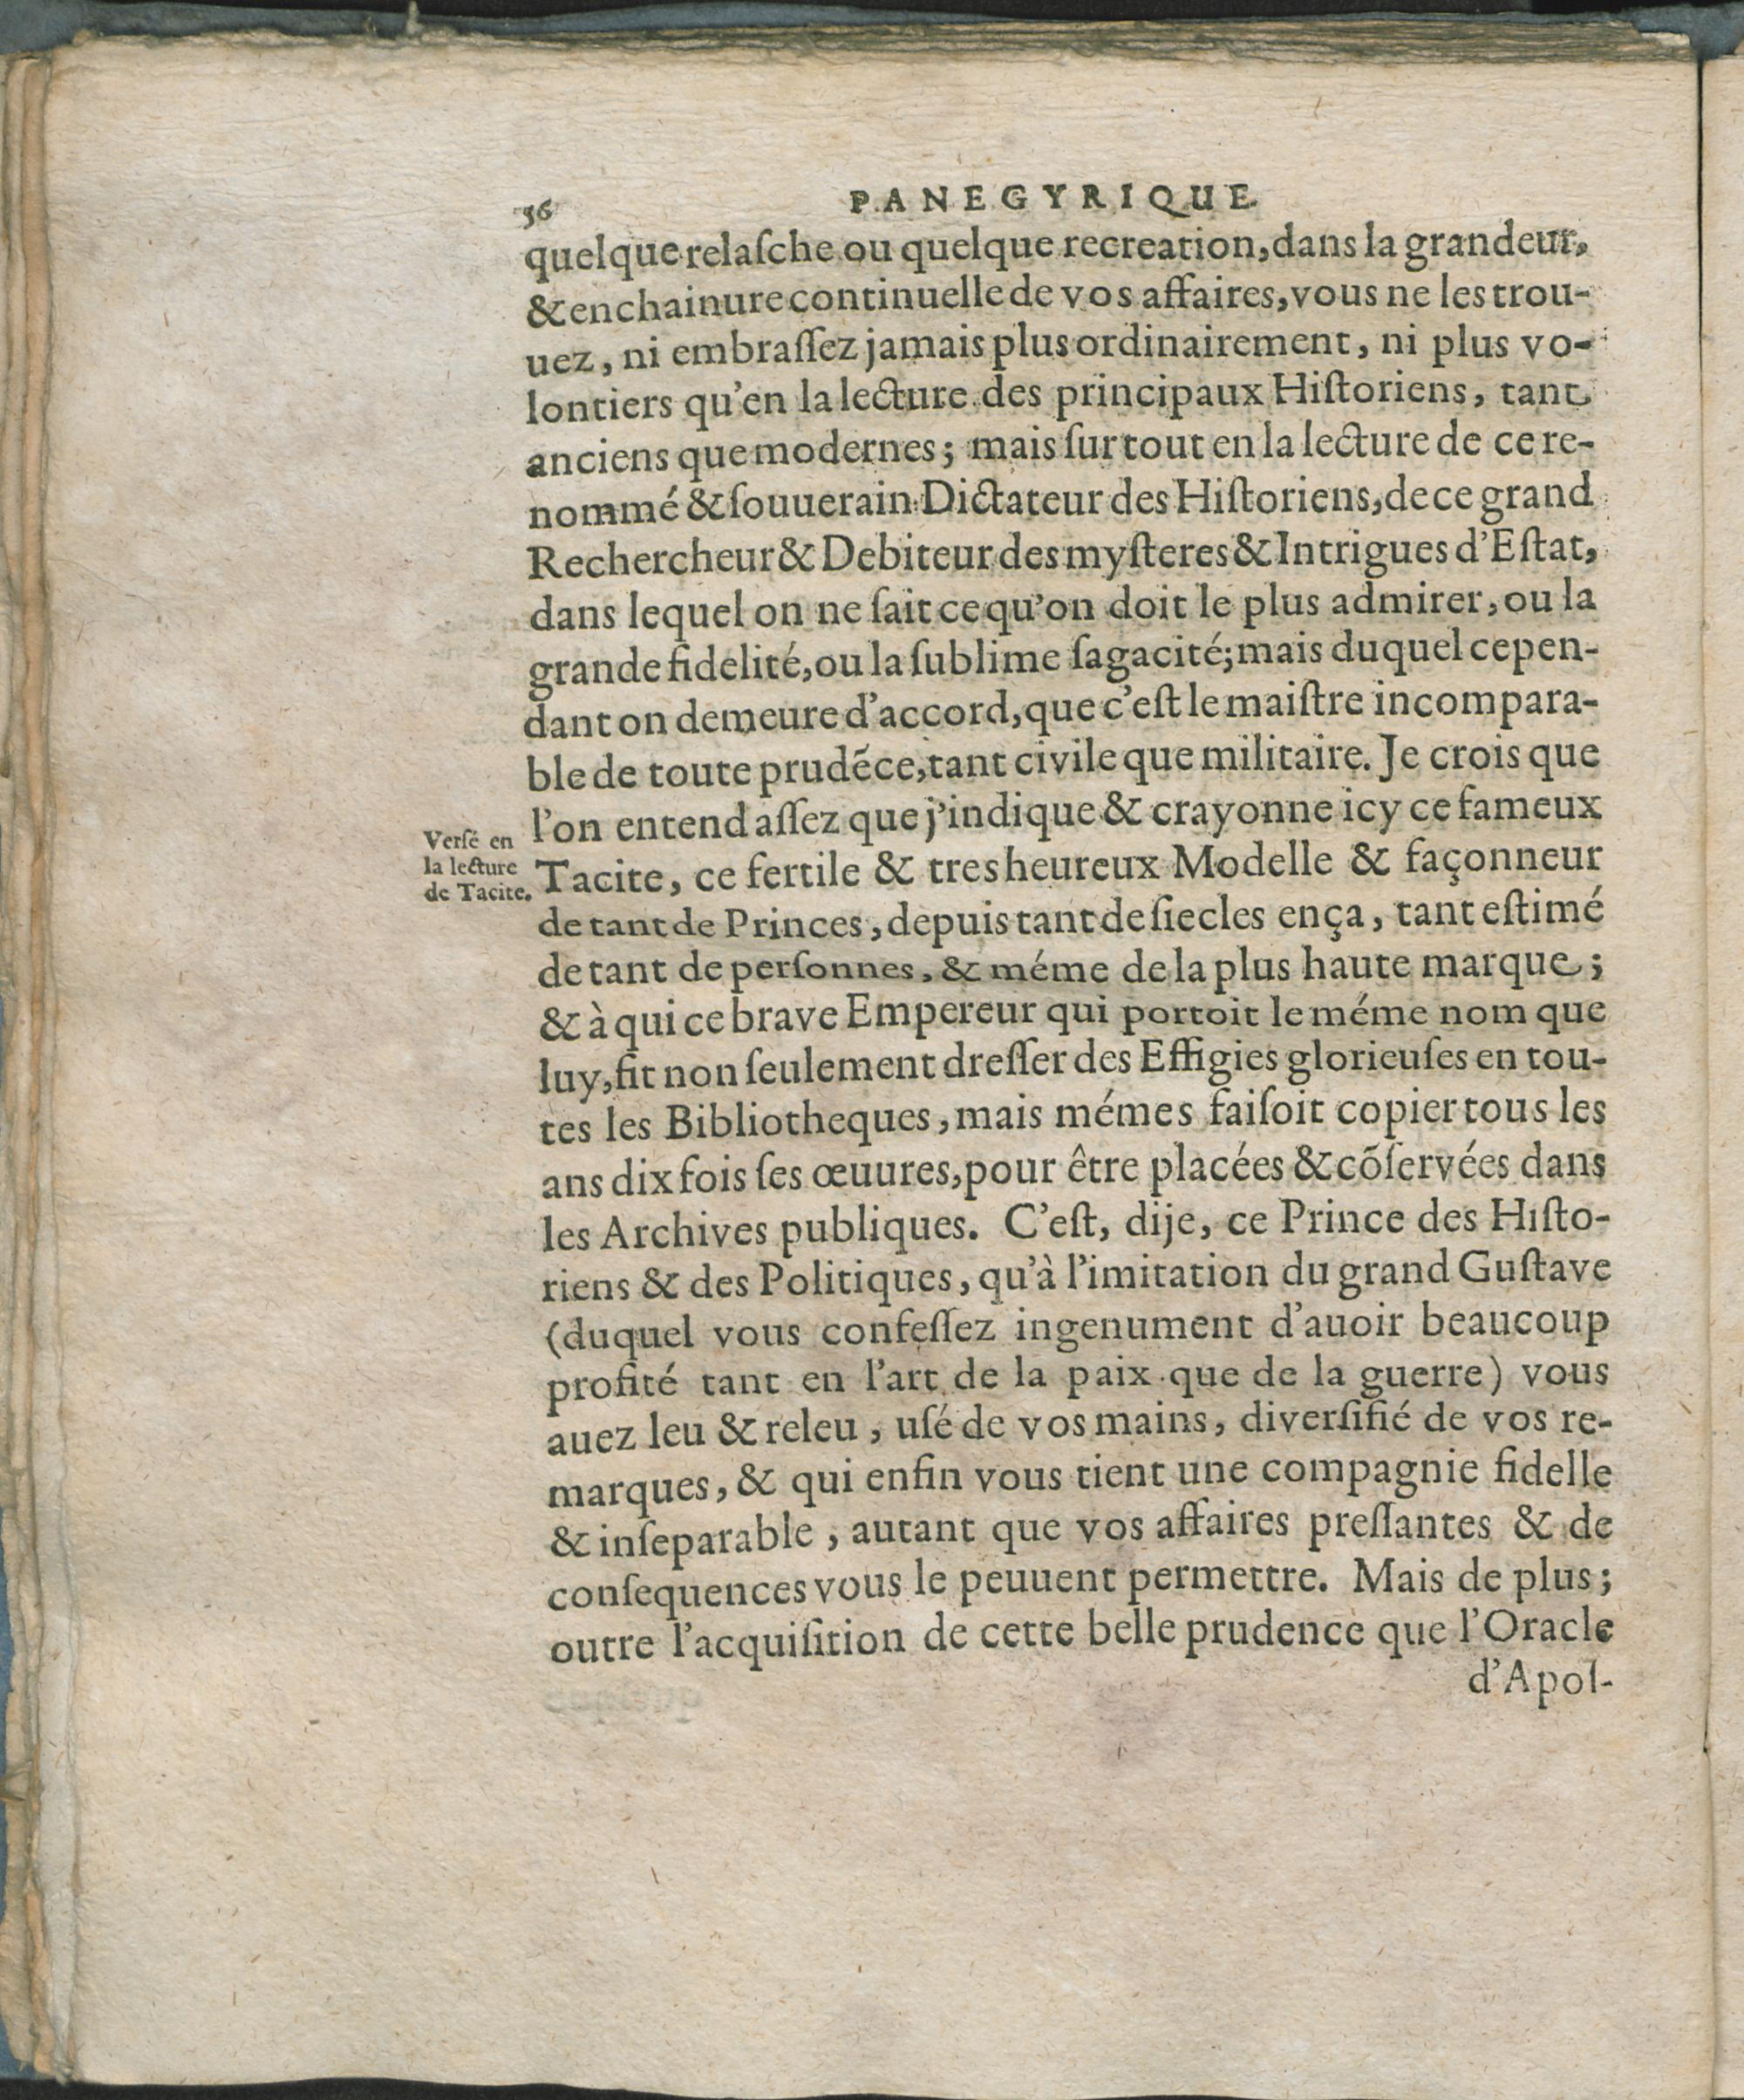 56
PANEGYRIQUE
quelque relaſche ou quelque recreation, dans la grandeur,
& enchainure continuelle de vos affaires, vous ne les trou-
uez, ni embraſſez jamais plus ordinairement, ni plus vo-
lontiers qu'en la lecture des principaux Hiſtoriens, tant
anciens que modernes; mais ſur tout en la lecture de ce re-
nommé & ſouuerain Dictateur des Hiſtoriens, de ce grand
Rechercheur & Debiteur des myſteres & Intrigues d'Eſtat,
dans lequel on ne ſait ce qu'on doit le plus admirer, ou la
grande fidelité, ou la ſublime ſagacité; mais duquel cepen-
dant on demeure d'accord, que c'eſt le maiſtre incompara-
ble de toute prudẽce, tant civile que militaire. Je crois que
l'on entend aſſez que j'indique & crayonne icy ce fameux
Verſé en
la lecture
de Tacite.
Tacite, ce fertile & tresheureux Modelle & façonneur
de tant de Princes, depuis tant de ſiecles ença, tant eſtimé
de tant de perſonnes, & méme de la plus haute marque;
& à qui ce brave Empereur qui portoit le méme nom que
luy, fit non ſeulement dreſſer des Effigies glorieuſes en tou-
tes les Bibliotheques, mais mémes faiſoit copier tous les
ans dix fois ſes œuures, pour être placées & cõſervées dans
les Archives publiques. C'eſt, dije, ce Prince des Hiſto-
riens & des Politiques, qu'à l'imitation du grand Guſtave
(duquel vous confeſſez ingenument d'auoir beaucoup
profité tant en l'art de la paix que de la guerre) vous
auez leu & releu, uſé de vos mains, diverſifié de vos re-
marques, & qui enfin vous tient une compagnie fidelle
& inſeparable, autant que vos affaires preſſantes & de
conſequences vous le peuuent permettre. Mais de plus;
outre l'acquiſition de cette belle prudence que l'Oracle
d'Apol-